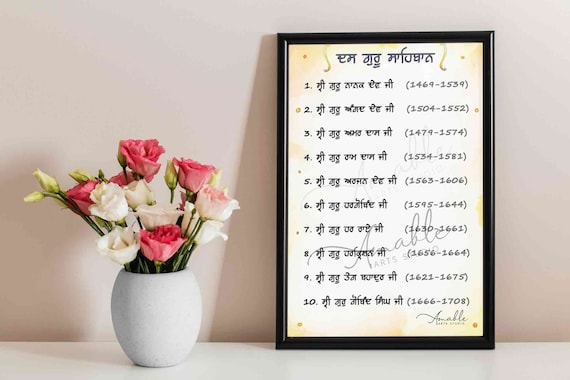 ਦਸ ਗੁਰੂ ਸਾਹਿਬਾਨ
1. ਸ੍ਰੀ ਗੁਰੂ ਨਾਨਕ ਦੇਵ ਜੀ (1469-1539)
2. ਸ੍ਰੀ ਗੁਰੂ ਅੰਗਦ ਦੇਵ ਜੀ (1504-1552)
3. ਸ੍ਰੀ ਗੁਰੂ ਅਮਰ ਦਾਸ ਜੀ (1479-1574)
4. ਸ੍ਰੀ ਗੁਰੂ ਰਾਮ ਦਾਸ ਜੀ (1534-1581)
5. ਸ੍ਰੀ ਗੁਰੂ ਅਰਜਨ ਦੇਵ ਜੀ (1563-1606)
6. ਸ੍ਰੀ ਗੁਰੂ ਹਰਗੋਬਿੰਦ ਜੀ (1595-1644)
7. ਸ੍ਰੀ ਗੁਰੂ ਹਰ ਰਾਏ ਜੀ (1630-1661)
Amable
ARTS STUDIO
8. ਸ੍ਰੀ ਗੁਰੂ ਹਰਕ੍ਰਿਸ਼ਨ ਜੀ (1656-1664)
9. ਸ੍ਰੀ ਗੁਰੂ ਤੇਗ ਬਹਾਦੁਰ ਜੀ (1621-1675)
10. ਸ੍ਰੀ ਗੁਰੂ ਗੋਬਿੰਦ ਸਿੰਘ ਜੀ (1666-1708)
Amable
ARTS STUDIO